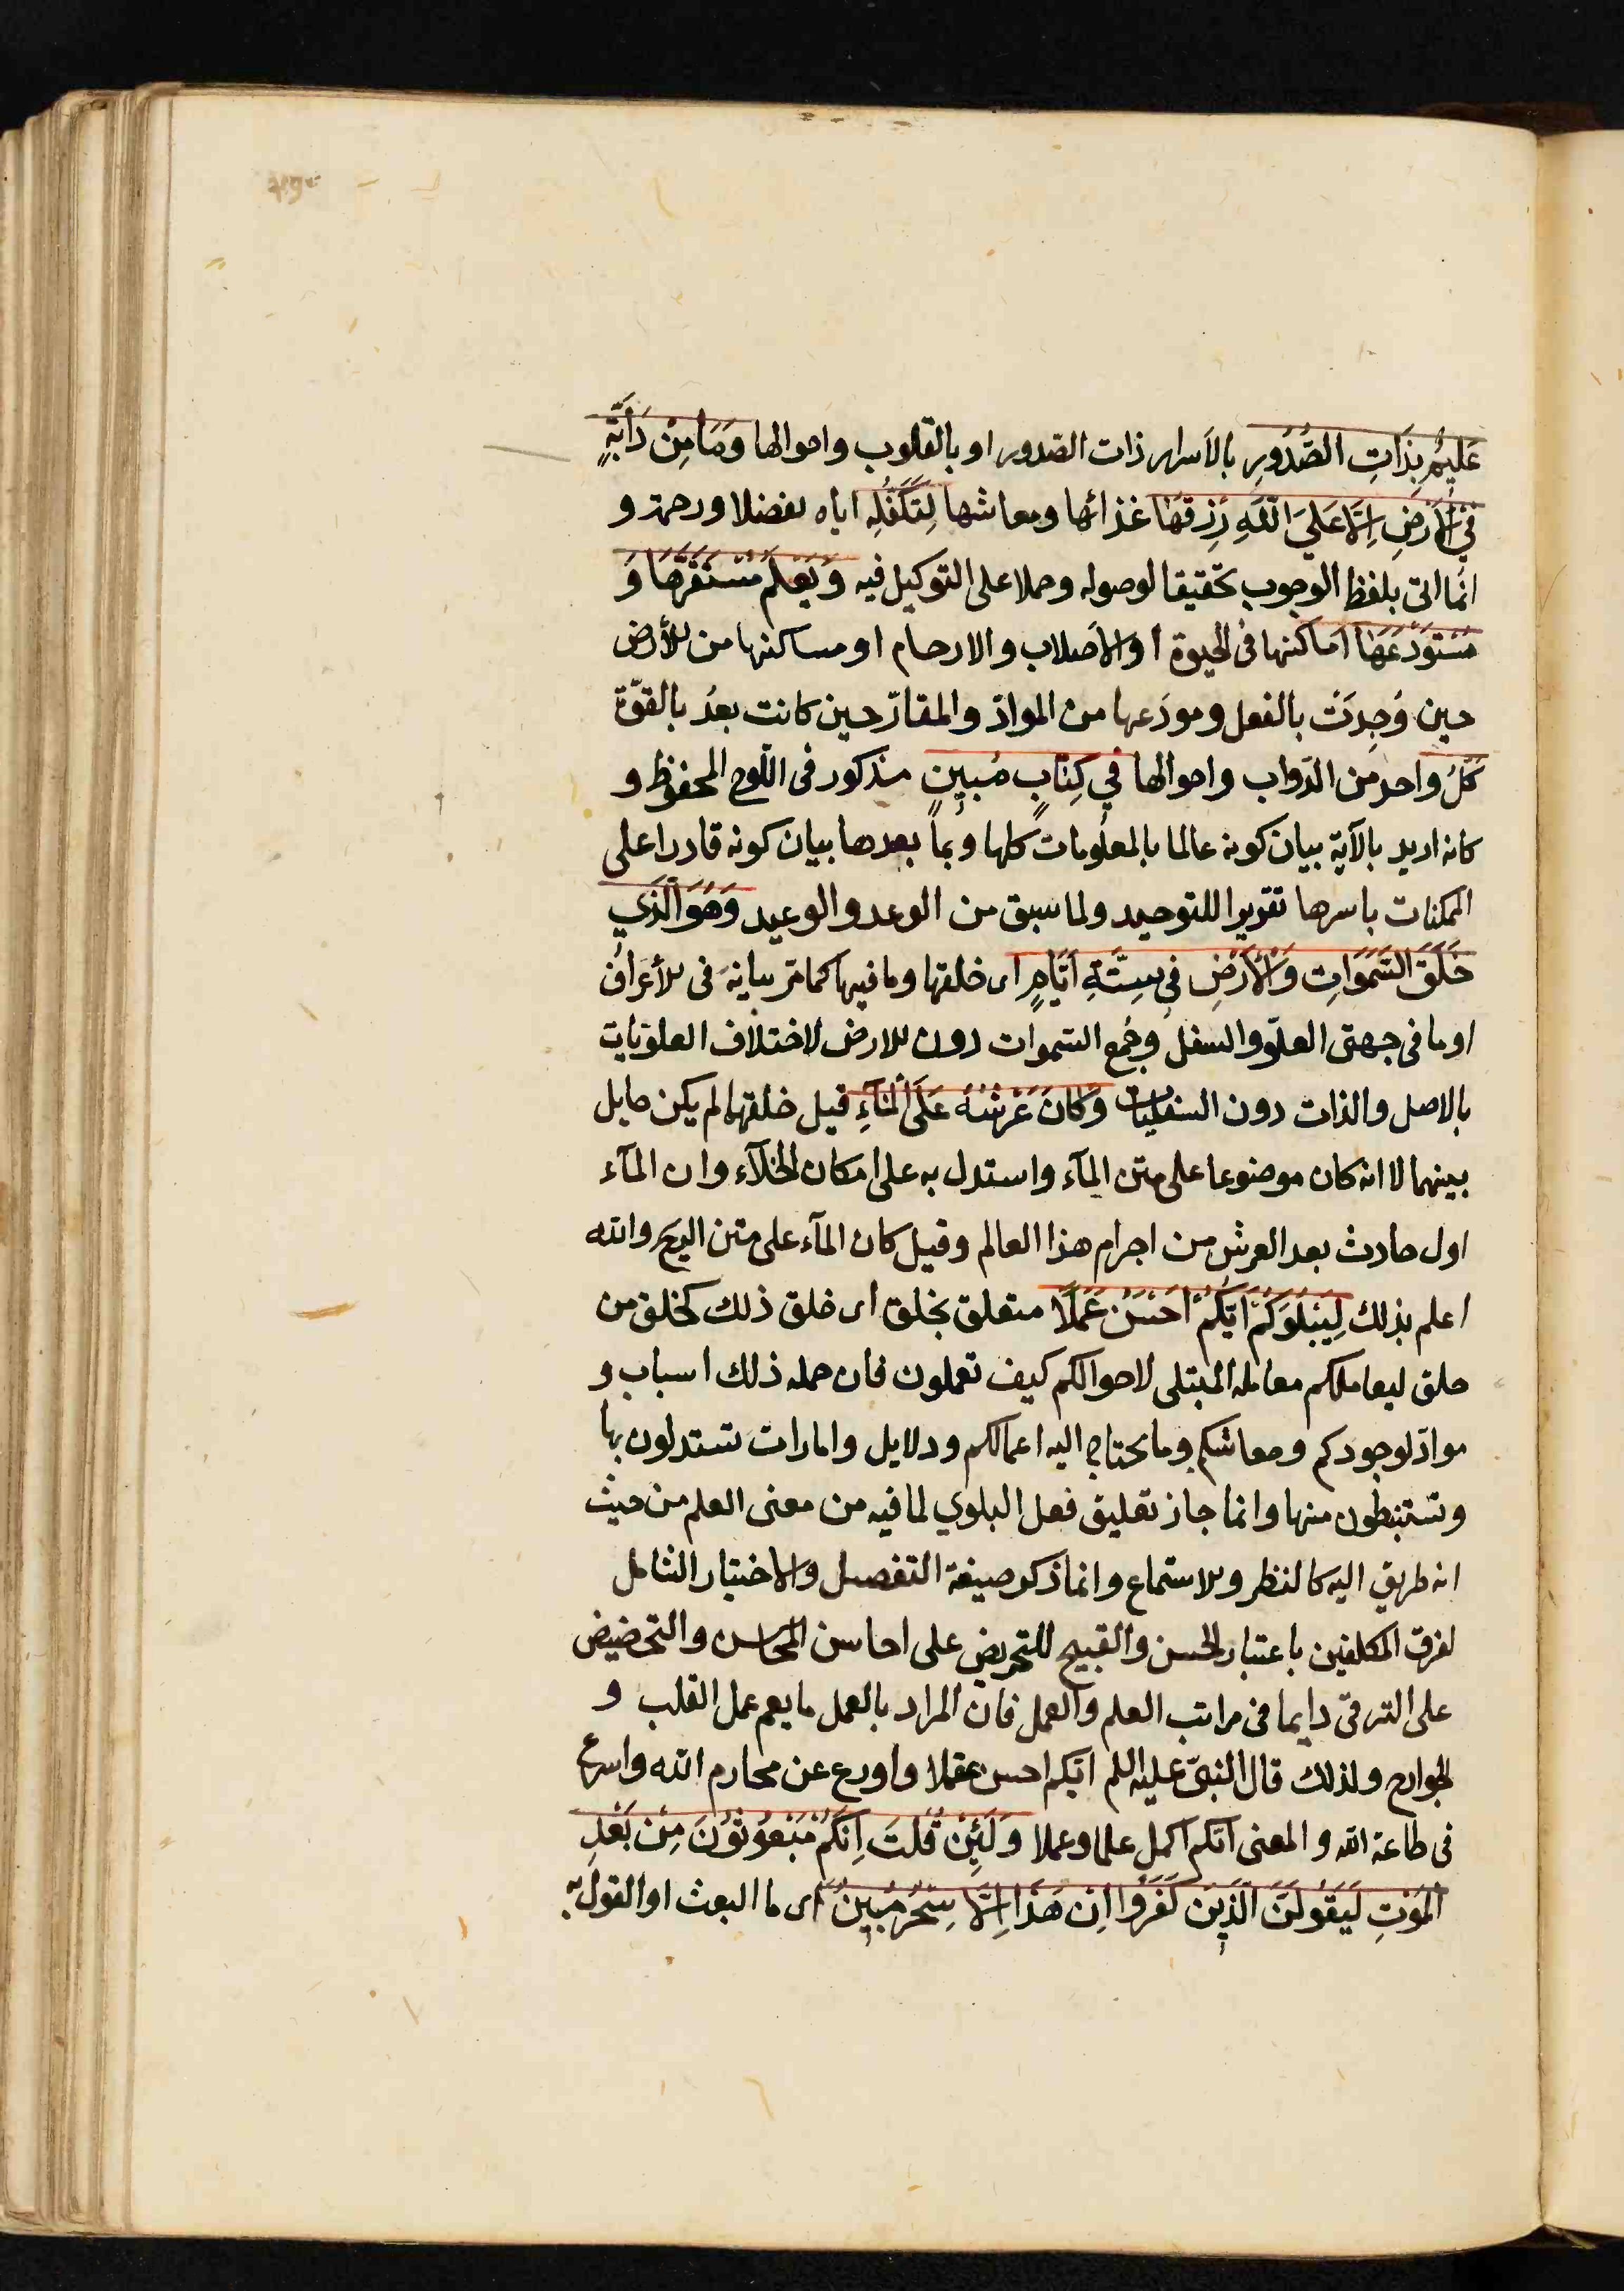 عَلِيمٌ بِذَاتِ الصُّدُورِ بالاسرار ذات الصّدور او بالقلوب واحوالها وَمَا مِنْ دَابَّةٍ
فِي الْأَرْضِ إِلَّا عَلَى اللهِ رِزْقُهَا غذائها ومعاشها لِتَكَفُّلِه اياه تفضلا ورحمة و
انّما اتى بلفظ الوجوب تحقيقا لوصوله وحملا على التوكيل فيه وَيَعْلَمُ مُسْتَقَرَّهَا وَ
مُسْتَوْدَعَهَا اماكنها فى الحيوة او الاصلاب والارحام او مساكنها من الأرض
حين وُجِدَتْ بالفعل ومودَعها من الموادّ والمقارّ حين كانت بعدُ بالقوّة
كُلٌّ واحد من الدّواب واحوالها فِي كِتَابٍ مُبِينٍ مذكور فى اللّوح المحفوظ و
كانه اريد بالآية بيان كونه عالما بالمعلومات كلها وبما بعدها بيان كونه قادرا على
الممكنات باسرها تقريرا للتوحيد ولما سبق من الوعد والوعيد وَهُوَ الَّذِي
خَلَقَ السَّمَوَاتِ وَالْأَرْضَ فِي سِتَّةِ أَيَّامٍ اى خلقها وما فيها كما مرّ بيانه فى الأعراف
او ما فى جهتى العلوّ والسفل وجُمع السّموات دون الارض لاختلاف العلويات
بالاصل والذات دون السفليات وَكَانَ عَرْشُهُ عَلَى الْمَآءِ قبل خلقها لم يكن حايل
بينهما لا انه كان موضوعا على متن المآء واستدل به على امكان الخلآء وان المآء
اول حادث بعد العرش من اجرام هذا العالم وقيل كان المآء على متن الريح والله
اعلم بذلك لِيَبْلُوَكُمْ أَيُّكُمْ أَحْسَنُ عَمَلًا متعلق بخلق اى خلق ذلك كخلق من
خلق ليعاملكم معاملة المبتلى لاحوالكم كيف تعملون فان جملة ذلك اسباب و
موادّ لوجودكم ومعاشكم وما يحتاج اليه اعمالكم ودلايل وامارات تستدلون بها
وتستنبطون منها وانما جاز تعليق فعل البلوي لما فيه من معنى العلم من حيث
انه طريق اليه كالنظر والاستماع وانما ذكر صيغة التفضيل والاختبار الشامل
لفرق المكلفين باعتبار الحسن والقبيح للتحريض على احاسن المحاسن والتحضيض
على الترقىّ دايما فى مراتب العلم والعمل فان المراد بالعمل ما يعم عمل القلب و
الجوارح ولذلك قال النبىّ عليه السلم ايّكم احسن عقلا واورع عن محارم الله واسرع
فى طاعة الله والمعنى ايّكم اكمل علما وعملا وَلَئِنْ قُلْتَ إِنَّكُمْ مَبْعُوثُونَ مِنْ بَعْدِ
الْمَوْتِ لَيَقُولَنَّ الَّذِينَ كَفَرُوا إِنْ هَذَا إِلَّا سِحْرٌ مُبِينٌ اى ما البعث او القول به